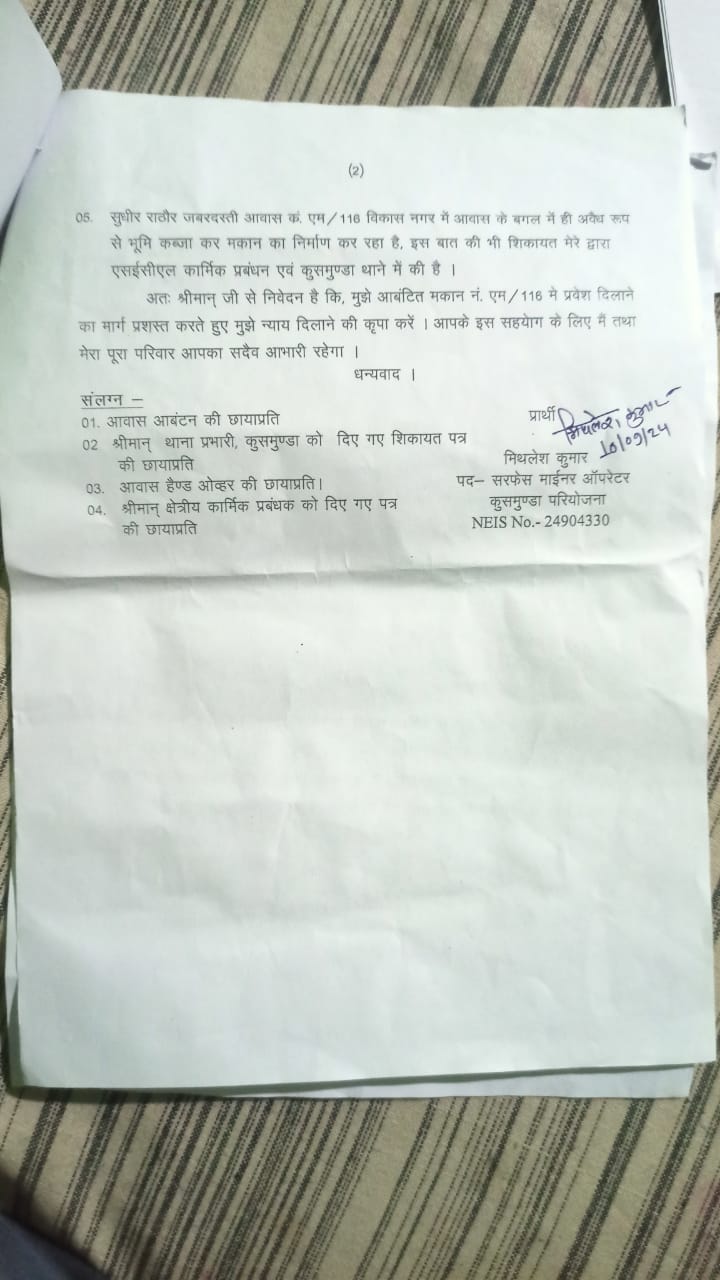 (2)
05. सुधीर राठौर जबरदस्ती आवास कं. एम/116 विकास नगर में आवास के बगल में ही अवैध रूप
से भूमि कब्जा कर मकान का निर्माण कर रहा है, इस बात की भी शिकायत मेरे द्वारा
एसईसीएल कार्मिक प्रबंधन एवं कुसमुण्डा थाने में की है ।
अतः श्रीमान् जी से निवेदन है कि, मुझे आबंटित मकान नं. एम/116 मे प्रवेश दिलाने
का मार्ग प्रशस्त करते हुए मुझे न्याय दिलाने की कृपा करें । आपके इस सहयेाग के लिए मैं तथा
मेरा पूरा परिवार आपका सदैव आभारी रहेगा ।
धन्यवाद ।
संलग्न –
01. आवास आबंटन की छायाप्रति
02 श्रीमान् थाना प्रभारी, कुसमुण्डा को दिए गए शिकायत पत्र
की छायाप्रति
03. आवास हैण्ड ओव्हर की छायाप्रति।
04. श्रीमान् क्षेत्रीय कार्मिक प्रबंधक को दिए गए पत्र
की छायाप्रति
प्रार्थी
मिथलेश कुमार
10/09/24
मिथलेश कुमार
पद– सरफेस माईनर ऑपरेटर
कुसमुण्डा परियोजना
NEIS No.- 24904330